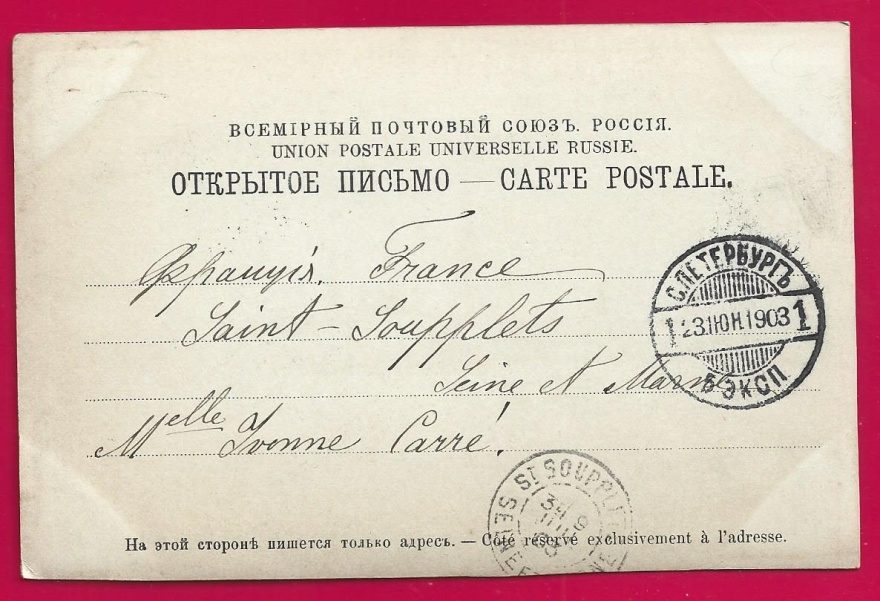 ВСЕМІРНЫЙ ПОЧТОВЫЙ СОЮЗЪ. РОССІЯ.
UNION POSTALE UNIVERSELLE RUSSIE.
ОТКРЫТОЕ ПИСЬМО — CARTE POSTALE.
Франція. France
Saint-Soupplets
Seine et Marne
Melle Yvonne Carré.
С.ПЕТЕРБУРГЪ
1 23.IЮН.1903 1
ЭКСП
ST SOUPPL
На этой сторонѣ пишется только адресъ. — Côté réservé exclusivement à l'adresse.